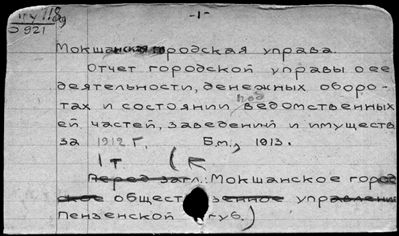 -1-
Э 921
Мокшанская городская управа.
Отчет городской управы о ее
деятельности, денежных оборо-
тах и состоянии подведомственных
ей частей, заведений и имуществ
за 1912 г. Б.м., 1913.
1 т (к
Перед загл.: Мокшанское город-
ское общественное управление
Пензенской губ.)